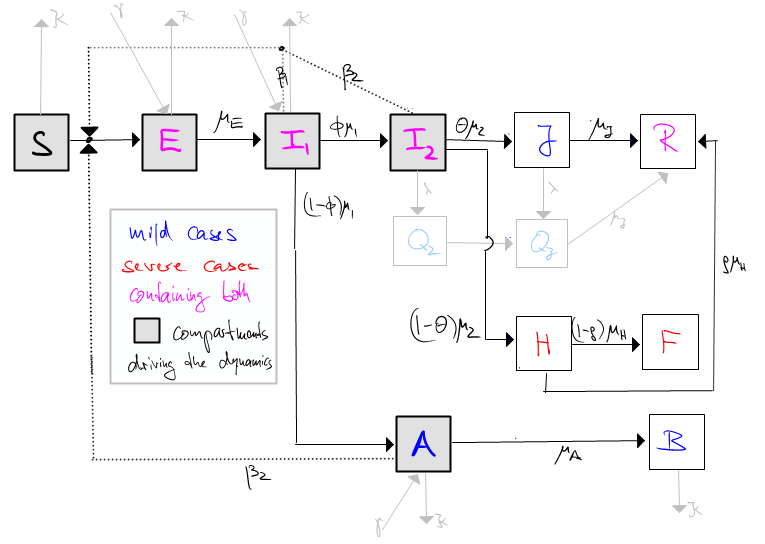 κ γ κ γ κ
β₁ β₂
S E I₁ I₂ J R
μE ϕμ₁ θμ₂ μJ
(1-ϕ)μ₁ λ λ
Q₂ QJ μJ
mild cases
severe cases
containing both
compartments
driving the dynamics
ρμH
(1-θ)μ₂ H (1-ρ)μH F
A μA B
β₂
γ κ κ